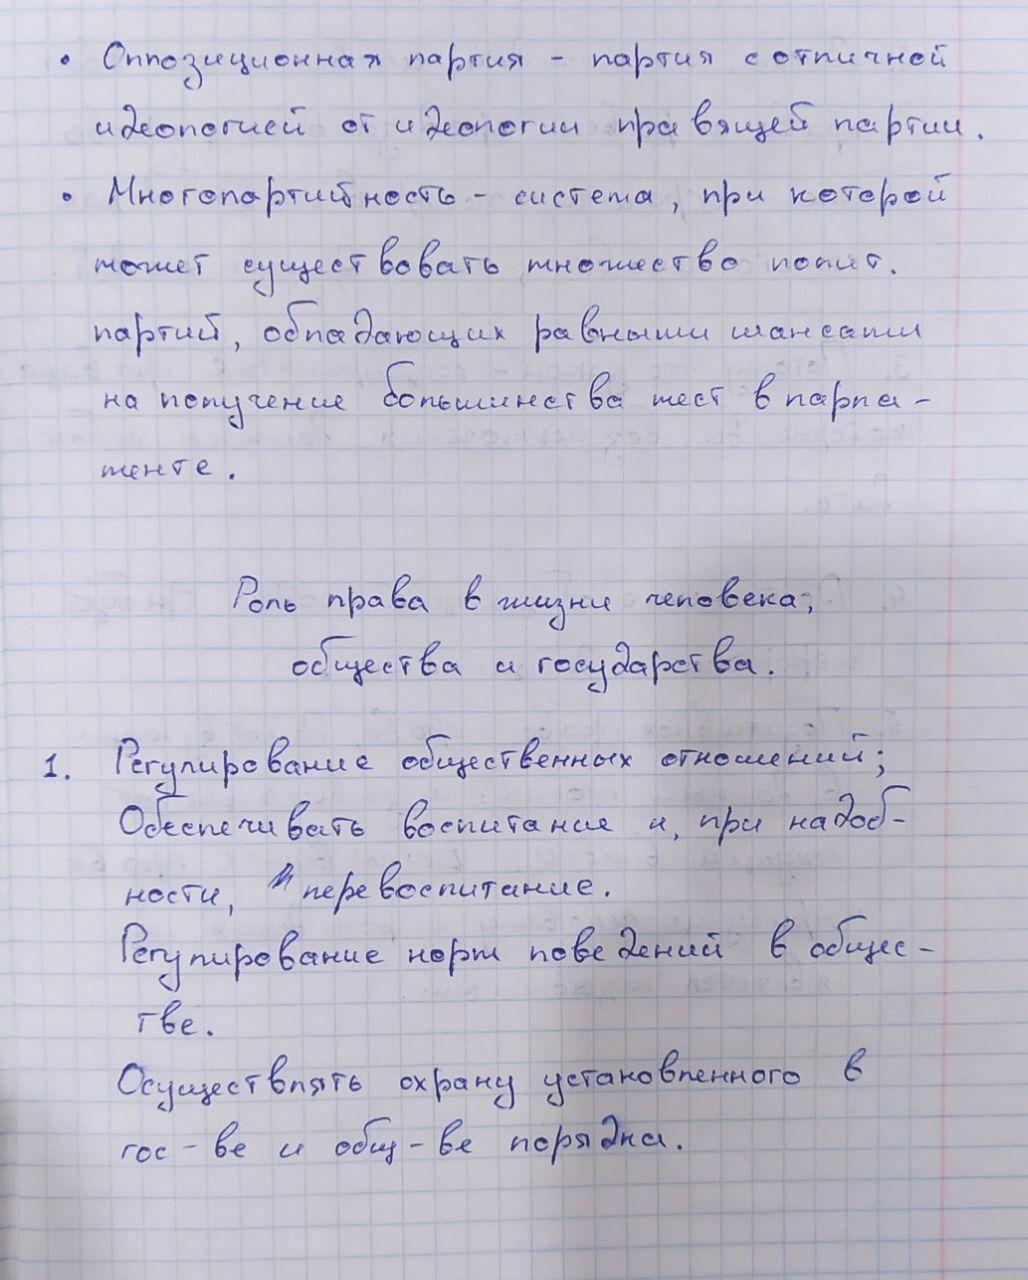 • Оппозиционная партия – партия с отличной
идеологией от идеологии правящей партии.
• Многопартийность – система, при которой
может существовать множество полит.
партий, обладающих равными шансами
на получение большинства мест в парла-
менте.
Роль права в жизни человека,
общества и государства.
1. Регулирование общественных отношений;
Обеспечивать воспитание и, при надоб-
ности, перевоспитание.
Регулирование норм поведений в общес-
тве.
Осуществлять охрану установленного в
гос-ве и общ-ве порядка.